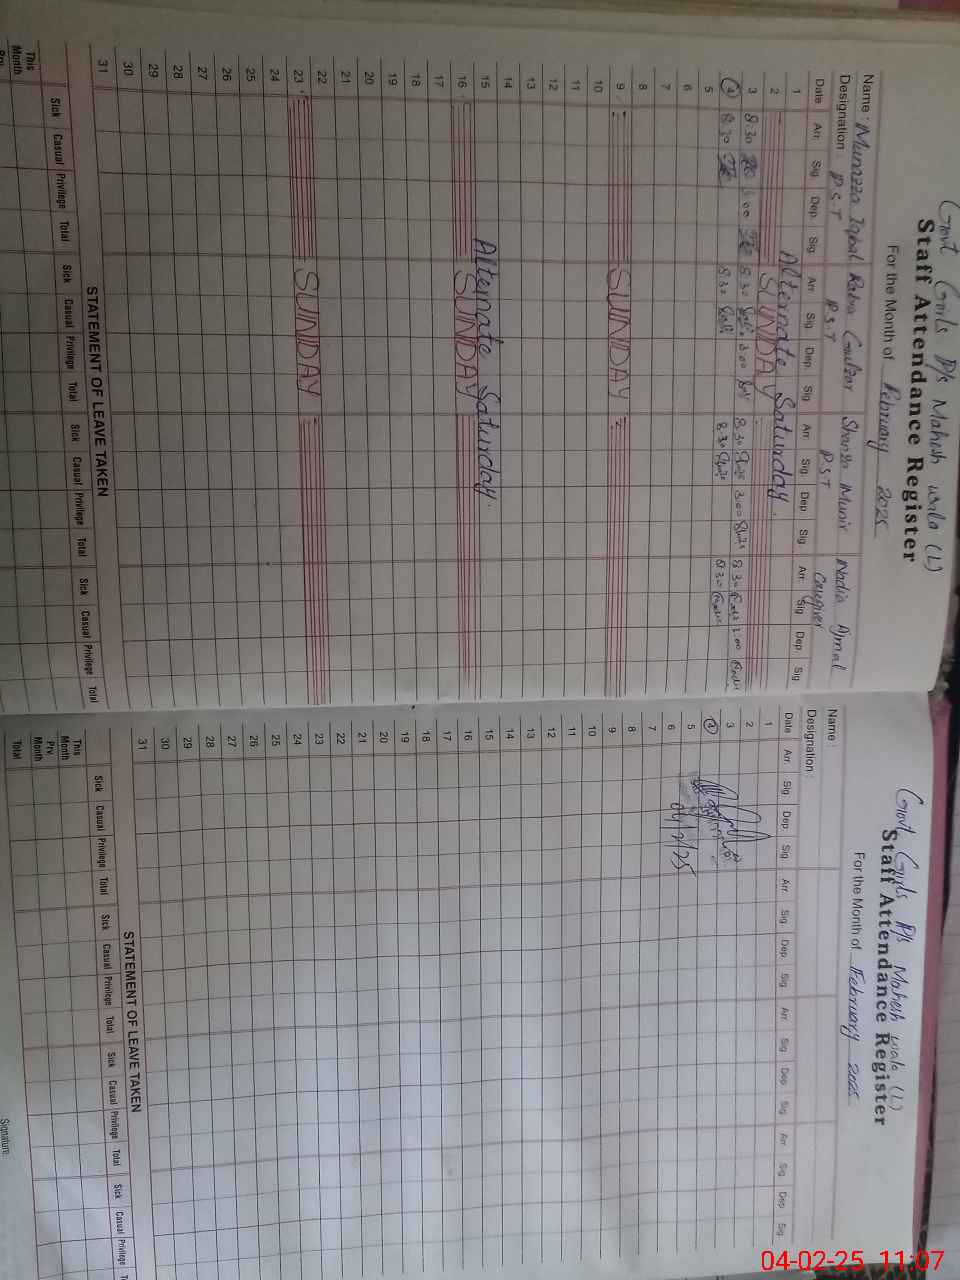 Govt Girls P/s Mahesh wala (L)
Staff Attendance Register
For the Month of February 2025
Name : Munazza Iqbal Rabia Gulzar Shanza Munir Nadia Ajmal
Designation : P.S.T P.S.T P.S.T Caregiver
Date Arr. Sig. Dep. Sig. Arr. Sig. Dep. Sig. Arr. Sig. Dep. Sig. Arr. Sig Dep. Sig.
1 Alternate Saturday.
2 SUNDAY
3 8 30 3 00 8 30 3 00 8 30 3 00 8 30 2.00
4 8 30 8 30 8 30 8 30
5
6
7
8
9 SUNDAY
10
11
12
13
14
15 Alternate Saturday.
16 SUNDAY
17
18
19
20
21
22
23 SUNDAY
24
25
26
27
28
29
30
31
STATEMENT OF LEAVE TAKEN
Sick Casual Privilege Total Sick Casual Privilege Total Sick Casual Privilege Total Sick Casual Privilege Total
This Month
Prv.
Govt. Girls P/s Mahesh wala (L)
Staff Attendance Register
For the Month of February 2025
Name :
Designation :
Date Arr. Sig. Dep. Sig. Arr. Sig. Dep. Sig. Arr. Sig. Dep. Sig. Arr. Sig. Dep. Sig.
1
2
3
4
5
6 04/2/25
7
8
9
10
11
12
13
14
15
16
17
18
19
20
21
22
23
24
25
26
27
28
29
30
31
STATEMENT OF LEAVE TAKEN
Sick Casual Privilege Total Sick Casual Privilege Total Sick Casual Privilege Total Sick Casual Privilege
This Month
Prv. Month
Total
Signature
04-02-25 11:07